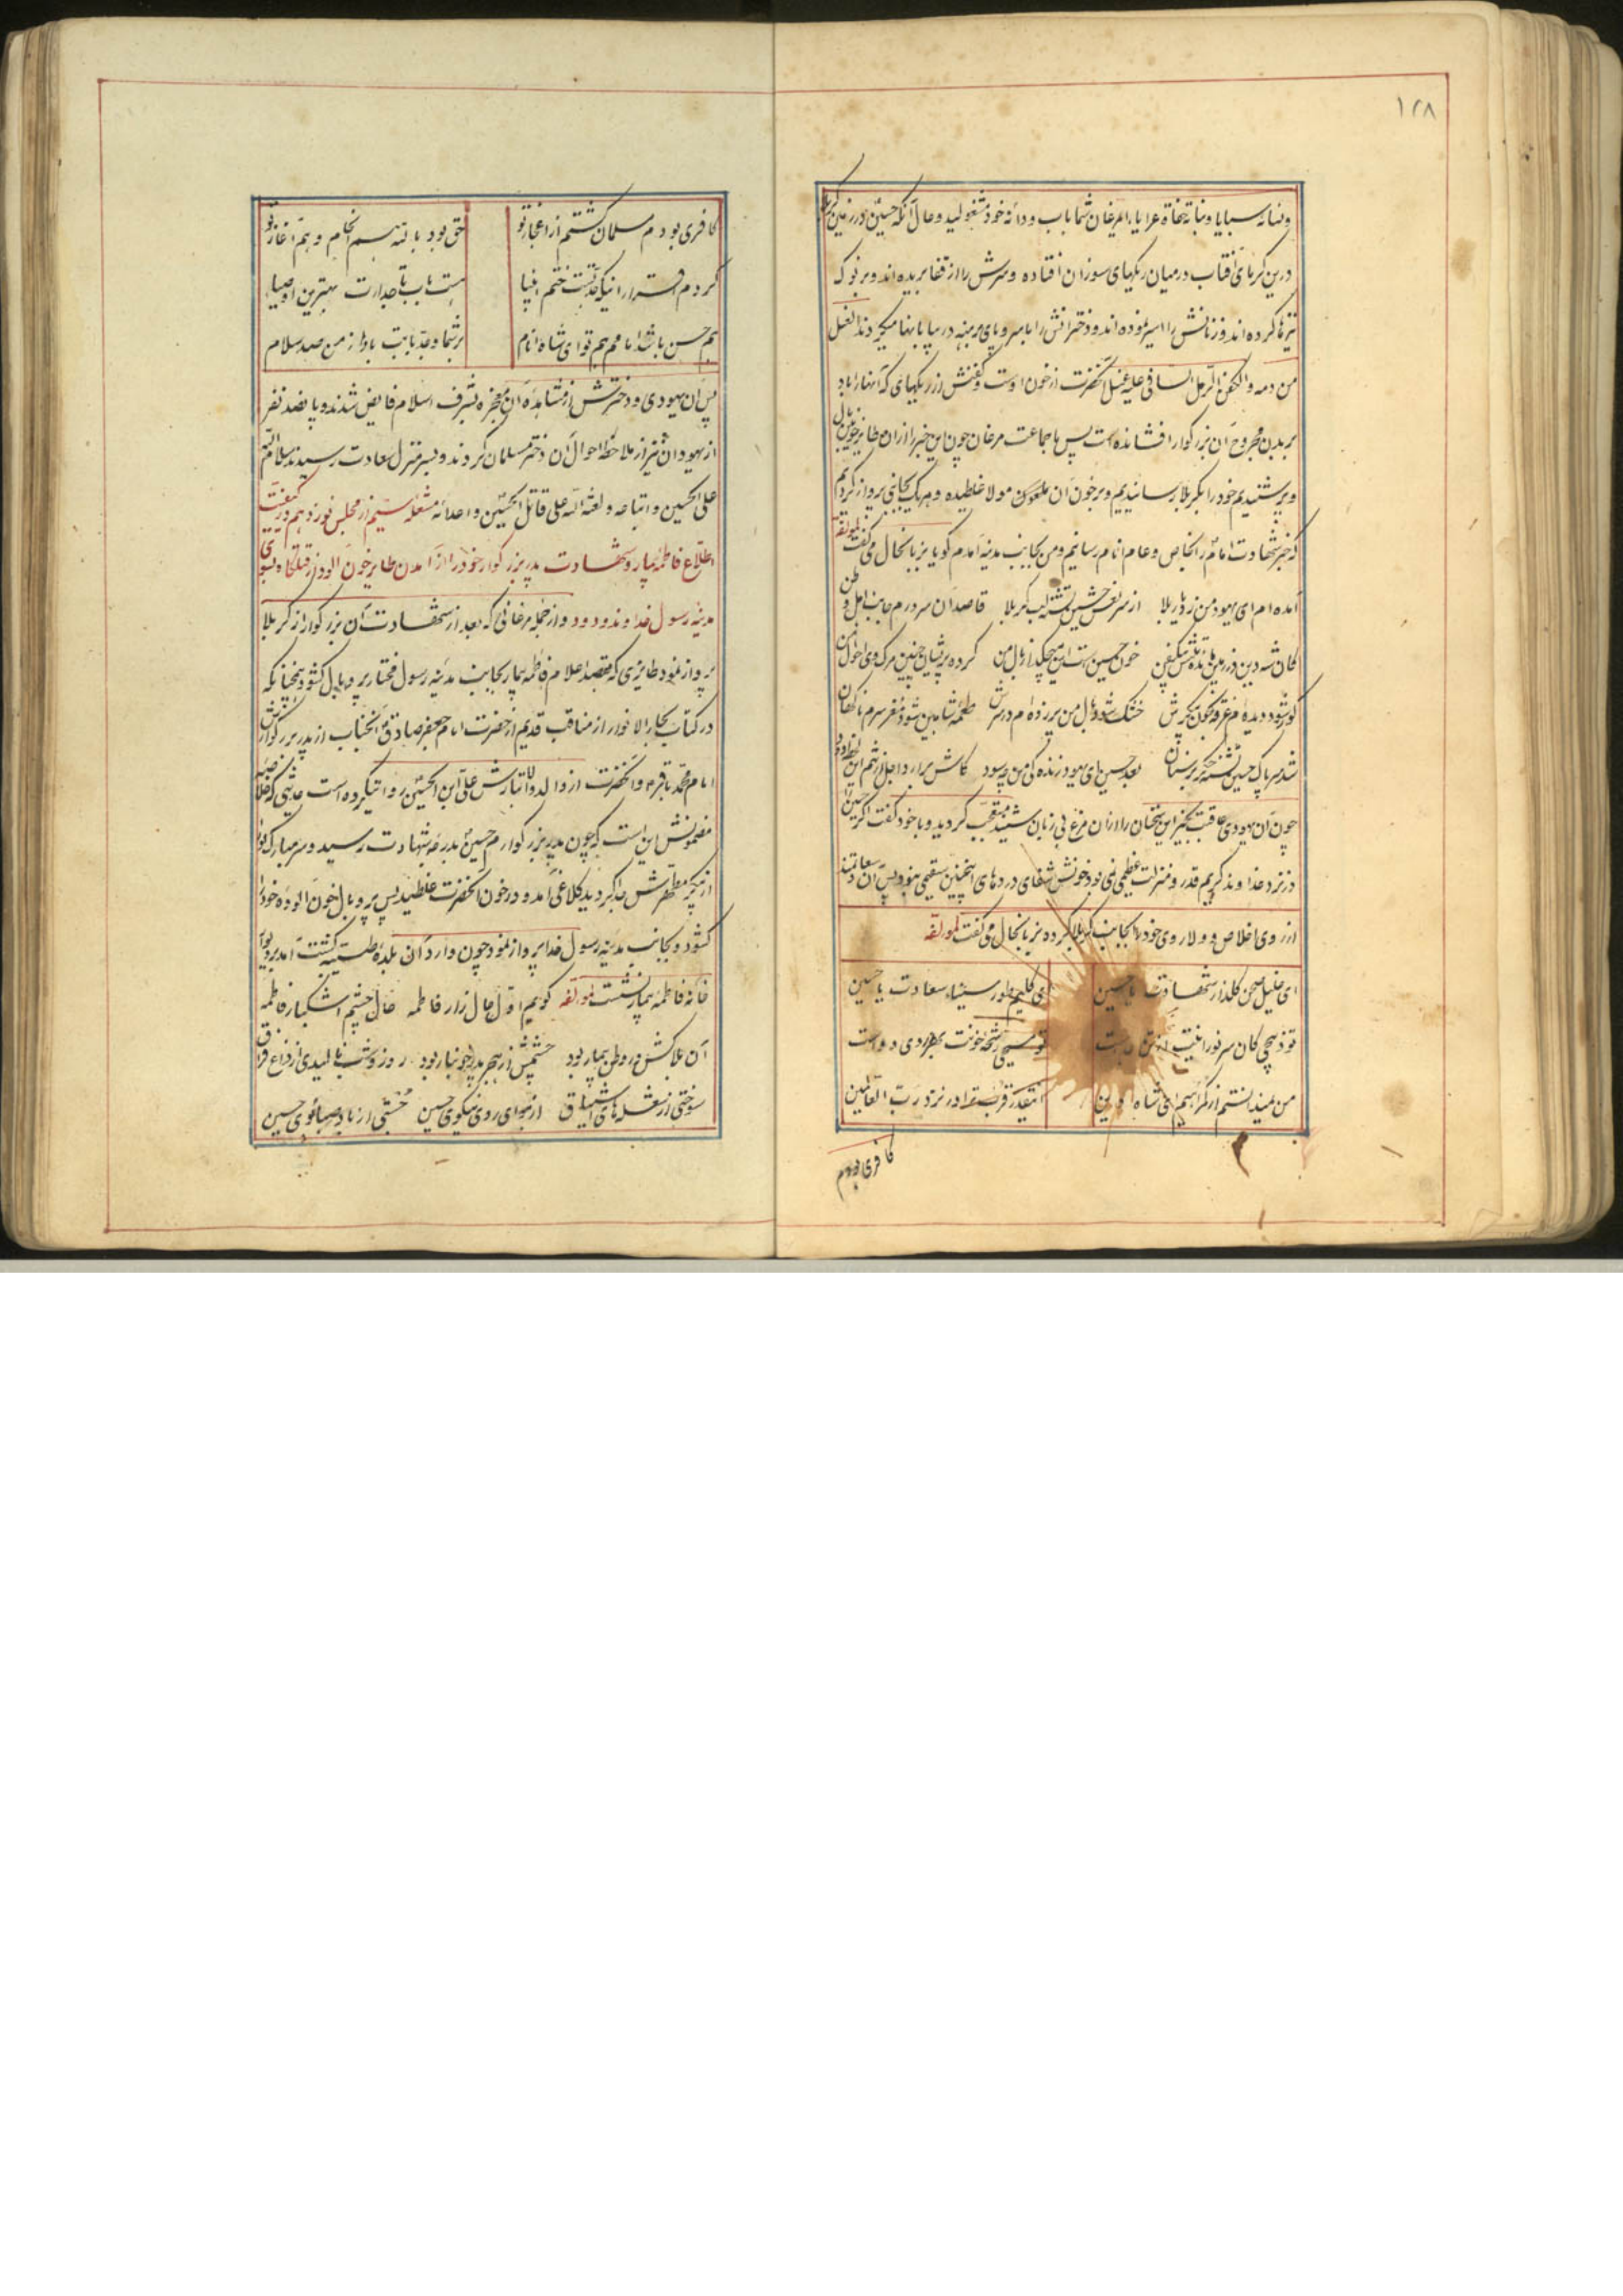 ۱۲۸
و نسائه سبایا و بناته حفاة عرایا ای مرغان شما باب و دانه خود مشغولید و حال آنکه حسین در زمین کربلا
درین گرمای آفتاب در میان ریگهای سوزان افتاده و سرش را از قفا بریده‌اند و بر نوک
نیزها کرده‌اند و زنانش را اسیر نموده‌اند و دخترانش را با سر و پای برهنه در بیابانها میگردانند الغسل
من دمه و الکفن الرمل السافی علیه غسل آنحضرت از خون اوست و کفنش از ریگهای که آنها را باد
بر بدن مجروح آن بزرگوار افشانده است پس ما جماعت مرغان چون این خبر را از ان طایر خونین بال
و پر شنیدیم خود را بکربلا رسانیدیم و بر خون ان مولا غلطیده و هر یک بجانبی پرواز کردیم
که خبر شهادت امام را بخاص و عام انام رسانیم و من بجانب مدینه آمدم گویا بزبانحال می گفت لمؤلفه
آمده‌ام ای یهود من ز دیار بلا از سر نعش حسین تشنه لب کربلا قاصد آن سرورم جانب اهل وطن
کان شه دین در زمین مانده تنش بیکفن خون حسین است این میچکد از بال من کرده پریشان چنین مرگ وی احوال من
کور شود دیده‌ام غرقه بخون پیکرش خشک شود بال من پر زده‌ام در برش طعمه شاهین شود مغز سرم ناگهان
شد سر پاک حسین تشنه جگر بر سنان بعد حسین ای یهود زنده کی من چه سود کاش برارد اجل از تنم این لحظه دود
چون آن یهودی عاقبت بخیر این سخنان را از ان مرغ بی زبان شنید متعجب گردید و با خود گفت اگر حسین را
در نزد خداوند کریم قدر و منزلت عظیمی نمی بود خونش شفای دردهای اینچنین سقیمی نبود پس آن سعادتمند
از روی اخلاص و ولا روی خود را بجانب کربلا کرده بزبانحال می گفت لمؤلفه
ای خلیل صحن گلذار شهادت یا حسین ای کلیم طور سیناء سعادت یا حسین
تو ذبیحی کان سر نورانیت از تن جداست تو مسیحی رشحهٔ خونت بهر دردی دواست
من نمیدانستم از گمراهیم ای شاه دین اینقدر قربست ترا در نزد رب العالمین
کافری بودم
کافری بودم مسلمان گشتم از اعجاز تو حق بود با تو هم انجام و هم آغاز تو
کردم اقرار اینکه جد تست ختم انبیا هست باب تاجدارت بهترین اوصیا
هم حسن باشد امامم هم تو ای شاه انام بر شما و جد و بابت باد از من صد سلام
پس آن یهودی و دخترش از مشاهده آن معجزه بشرف اسلام فایض شدند و پانصد نفر
از یهودان نیز از ملاحظه احوال آن دختر مسلمان گردیدند و بسر منزل سعادت رسیدند سلام الله
علی الحسین و اتباعه و لعنة الله علی قاتل الحسین و اعدائه مشعله سیم از مجلس نوزدهم در کیفیت
اطلاع فاطمه بیمار و شهادت پدر بزرگوار خود را از آمدن طایر خون آلود از قتلگاه بسوی
مدینه رسول خداوند ودود و از جمله مرغانی که بعد از شهادت آن بزرگوار از کربلا
پرواز نمود طایری که بقصد اعلام فاطمه بیمار بجانب مدینه رسول مختار پر و بال گشود چنانکه
در کتاب بحار الانوار از مناقب قدیم از حضرت امام جعفر صادق و آنجناب از پدر بزرگوارش
امام محمد باقر و آنحضرت از والد والاتبارش علی ابن الحسین روایتی کرده است حدیثی که خلاصه
مضمونش این است که چون پدر بزرگوارم حسین بدرجه شهادت رسید و سر مبارک او را
از پیکر مطهرش جدا کردید کلاغی آمد و در خون آنحضرت غلطید پس پر و بال خون آلوده خود را
گشود و بجانب مدینه رسول خدا پرواز نمود چون وارد آن بلده طیبه گشت آمد بر دیوار
خانه فاطمه بیمار نشست لمؤلفه گویم اول حال زار فاطمه حال چشم اشکبار فاطمه
آن بلاکش در وطن بیمار بود چشمش از هجر پدر خونبار بود روز و شب نالیدی از داغ فراق
سوختی از شعله های اشتیاق از هوای روی نیکوی حسین جستی از باد صبا بوی حسین